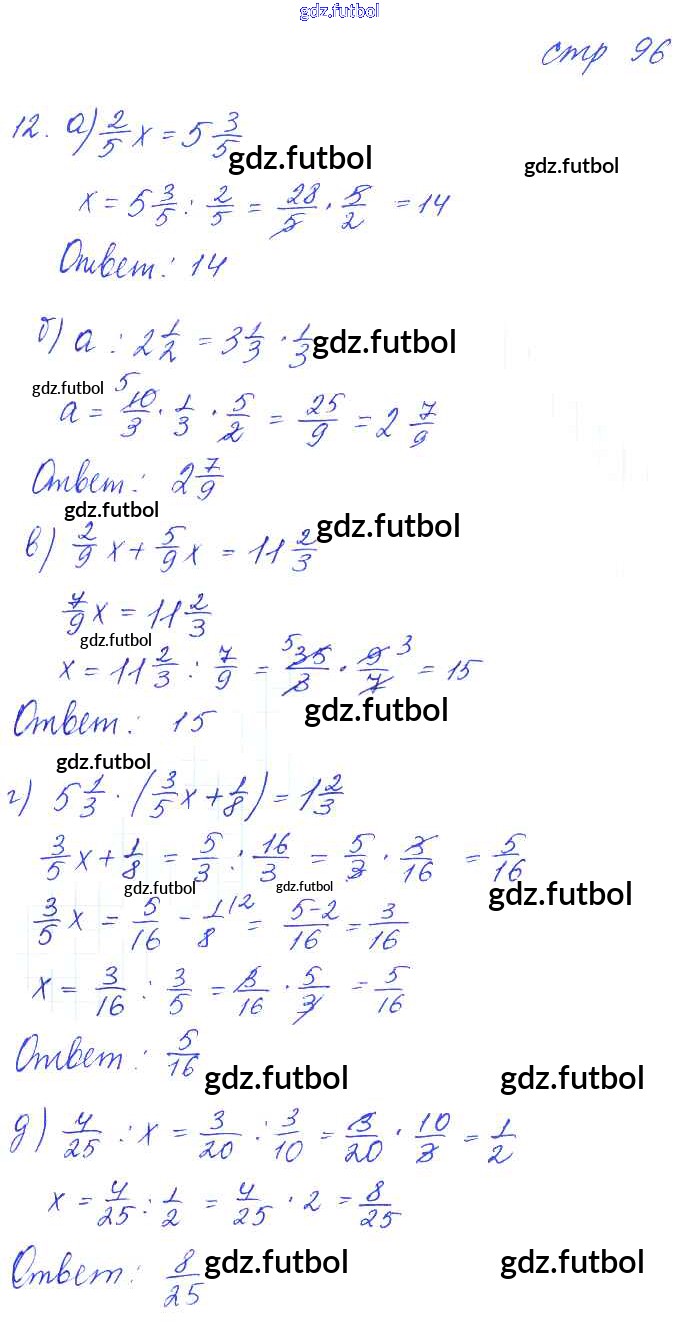 gdz.futbol
стр 96
12. а) 2/5 x = 5 3/5
gdz.futbol gdz.futbol
x = 5 3/5 : 2/5 = 28/5 · 5/2 = 14
Ответ: 14
б) a : 2 1/2 = 3 1/3 · 1/3
gdz.futbol
gdz.futbol
a = 5 10/3 · 1/3 · 5/2 = 25/9 = 2 7/9
Ответ: 2 7/9
gdz.futbol gdz.futbol
в) 2/9 x + 5/9 x = 11 2/3
7/9 x = 11 2/3
gdz.futbol
x = 11 2/3 : 7/9 = 5 35/3 · 9/7 3 = 15
gdz.futbol
Ответ: 15
gdz.futbol
г) 5 1/3 · (3/5 x + 1/8) = 1 2/3
3/5 x + 1/8 = 5/3 : 16/3 = 5/3 · 3/16 = 5/16
gdz.futbol gdz.futbol gdz.futbol
3/5 x = 5/16 - 1/8 |2 = 5-2/16 = 3/16
x = 3/16 : 3/5 = 3/16 · 5/3 = 5/16
Ответ: 5/16
gdz.futbol gdz.futbol
д) 4/25 : x = 3/20 : 3/10 = 3/20 · 10/3 = 1/2
x = 4/25 : 1/2 = 4/25 · 2 = 8/25
Ответ: 8/25
gdz.futbol gdz.futbol